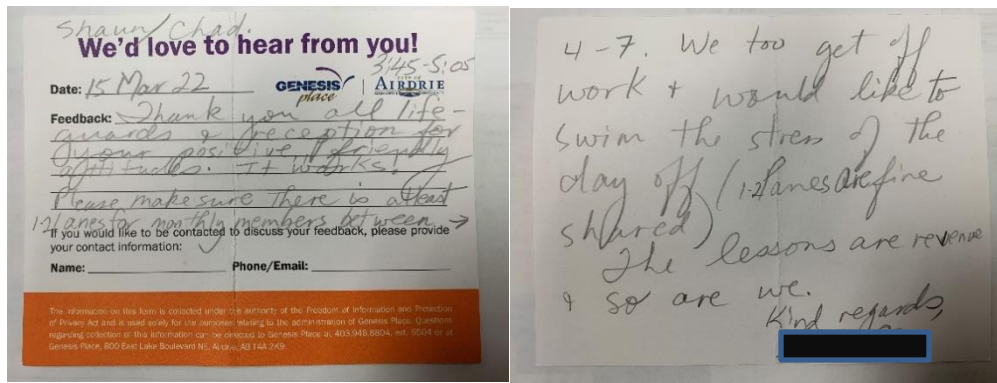 Shaun/Chad.
We'd love to hear from you!
3:45-5:05
Date: 15 Mar 22
GENESIS place
CITY OF AIRDRIE
Feedback: Thank you all life-
guards & reception for
your positive, friendly
attitudes. It works.
Please make sure there is atleast
1-2 lanes for monthly members between →
If you would like to be contacted to discuss your feedback, please provide
your contact information:
Name: Phone/Email:
The information on this form is collected under the authority of the Freedom of Information and Protection
of Privacy Act and is used solely for the purposes relating to the administration of Genesis Place. Questions
regarding collection of this information can be directed to Genesis Place at 403.948.8804, ext. 6604 or at
Genesis Place, 800 East Lake Boulevard NE, Airdrie, AB T4A 2K9.
4-7. We too get off
work & would like to
swim the stress of the
day off (1-2 lanes are fine
shared)
The lessons are revenue
& so are we.
Kind regards,